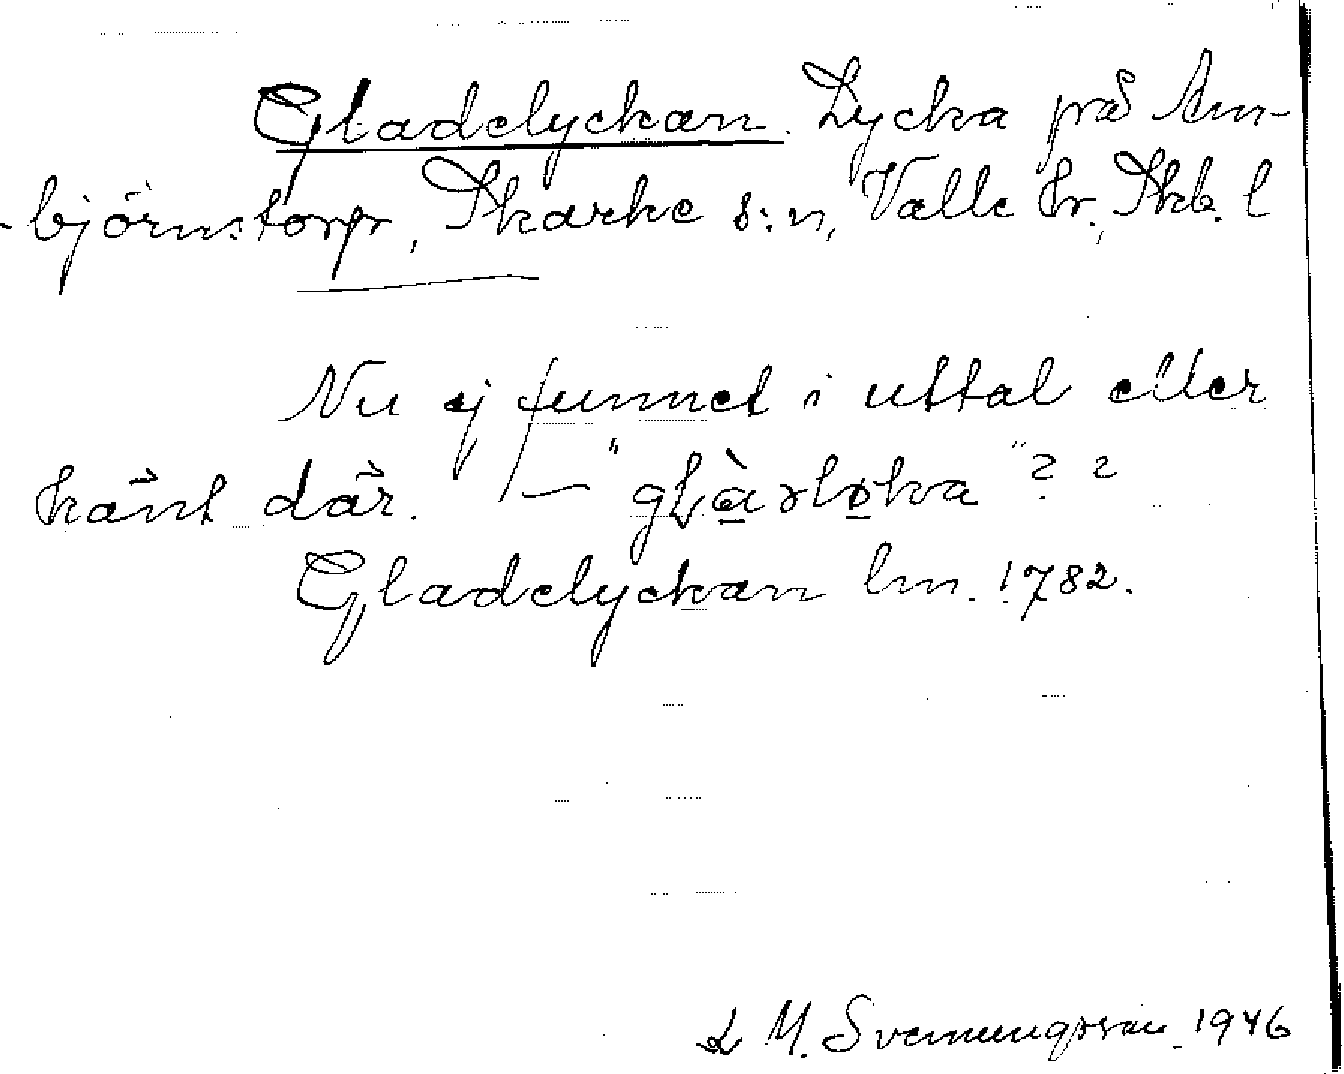 Gladelyckan. Lycka på Arn-
-björnstorp, Skarke s:n, Valle hr., Skb. l
Nu ej funnet i uttal eller
känt där. — "gɫàɘlɵka"? ?
Gladelyckan lm. 1782.
L M. Svenungsson 1946